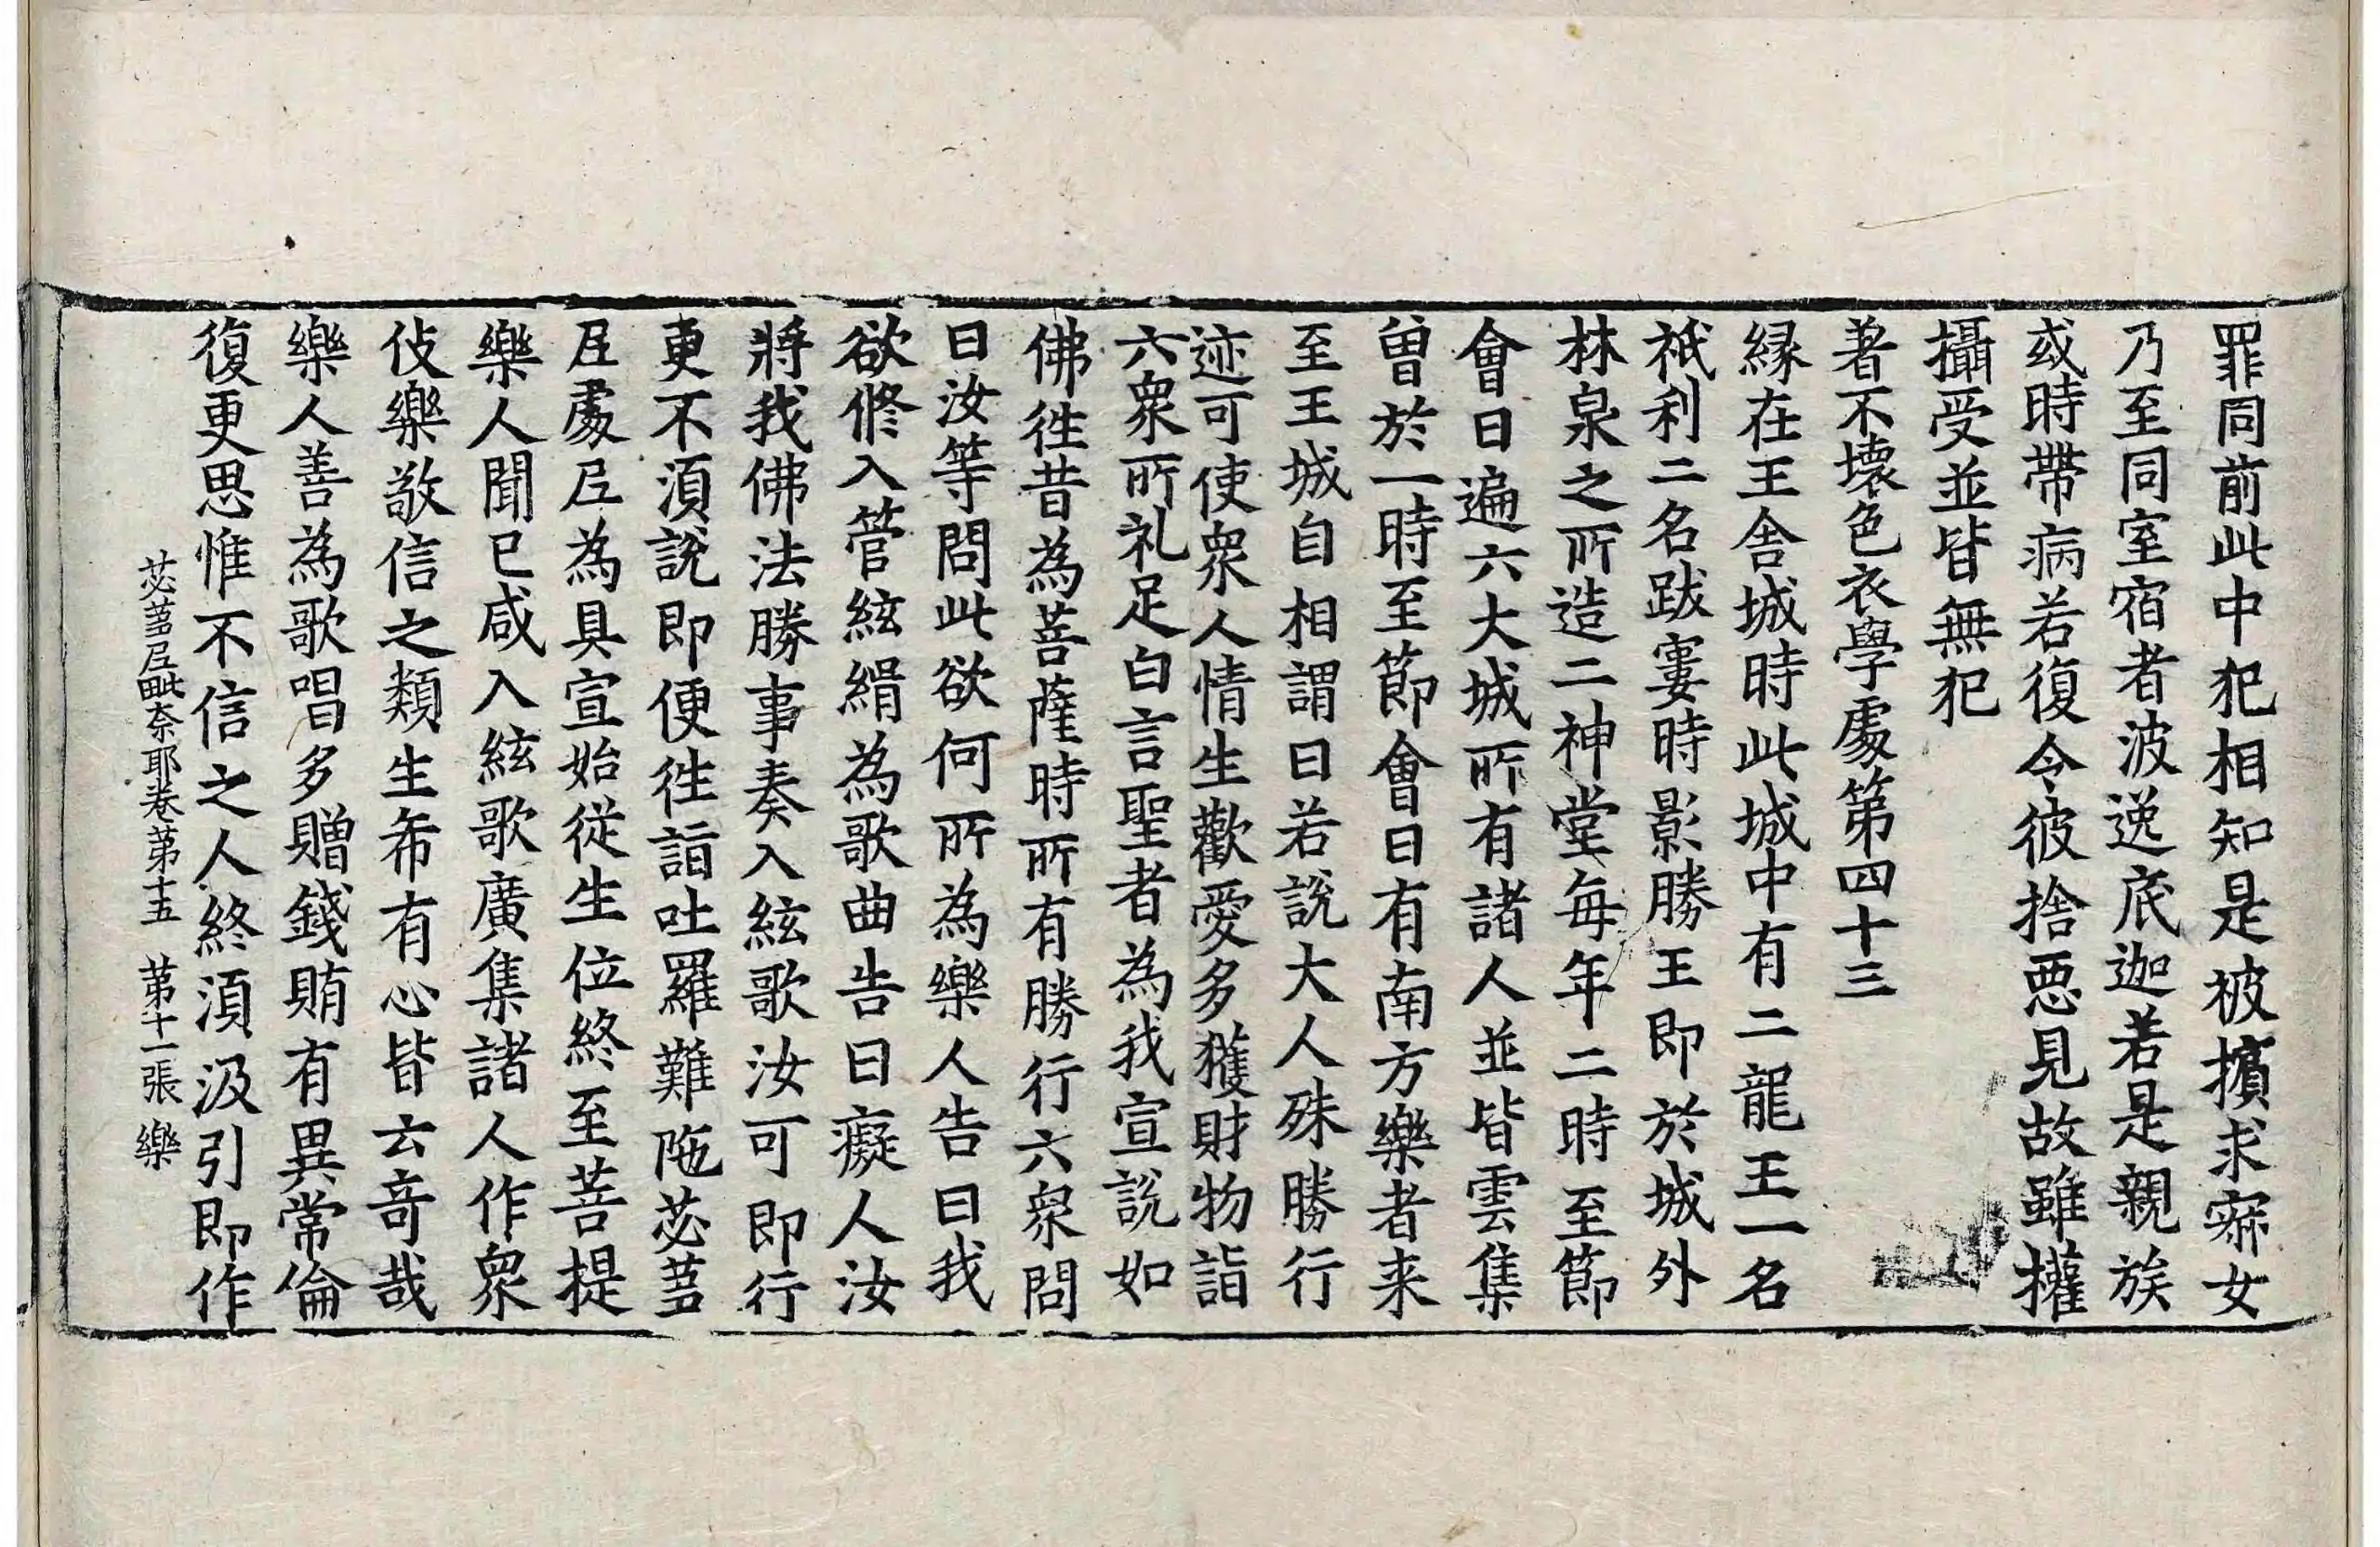 罪同前此中犯相知是被擯求寂女
乃至同室宿者波逸底迦若是親族
或時帶病若復令彼捨惡見故雖權
攝受並皆無犯
著不壞色衣學處第四十三
緣在王舍城時此城中有二龍王一名
祇利二名跋窶時影勝王即於城外
林泉之所造二神堂每年二時至節
會日遍六大城所有諸人並皆雲集
曾於一時至節會日有南方樂者来
至王城自相謂曰若說大人殊勝行
迹可使衆人情生歡愛多獲財物詣
六衆所礼足白言聖者為我宣說如
佛往昔為菩薩時所有勝行六衆問
曰汝等問此欲何所為樂人告曰我
欲修入管絃緝為歌曲告曰癡人汝
將我佛法勝事奏入絃歌汝可即行
更不湏說即便往詣吐羅難陁苾蒭
尼處尼為具宣始從生位終至菩提
樂人聞已咸入絃歌廣集諸人作衆
伎樂敬信之類生希有心皆云竒哉
樂人善為歌唱多贈錢賄有異常倫
復更思惟不信之人終湏汲引即作
苾蒭尼毗奈耶卷第十五　第十一張　樂